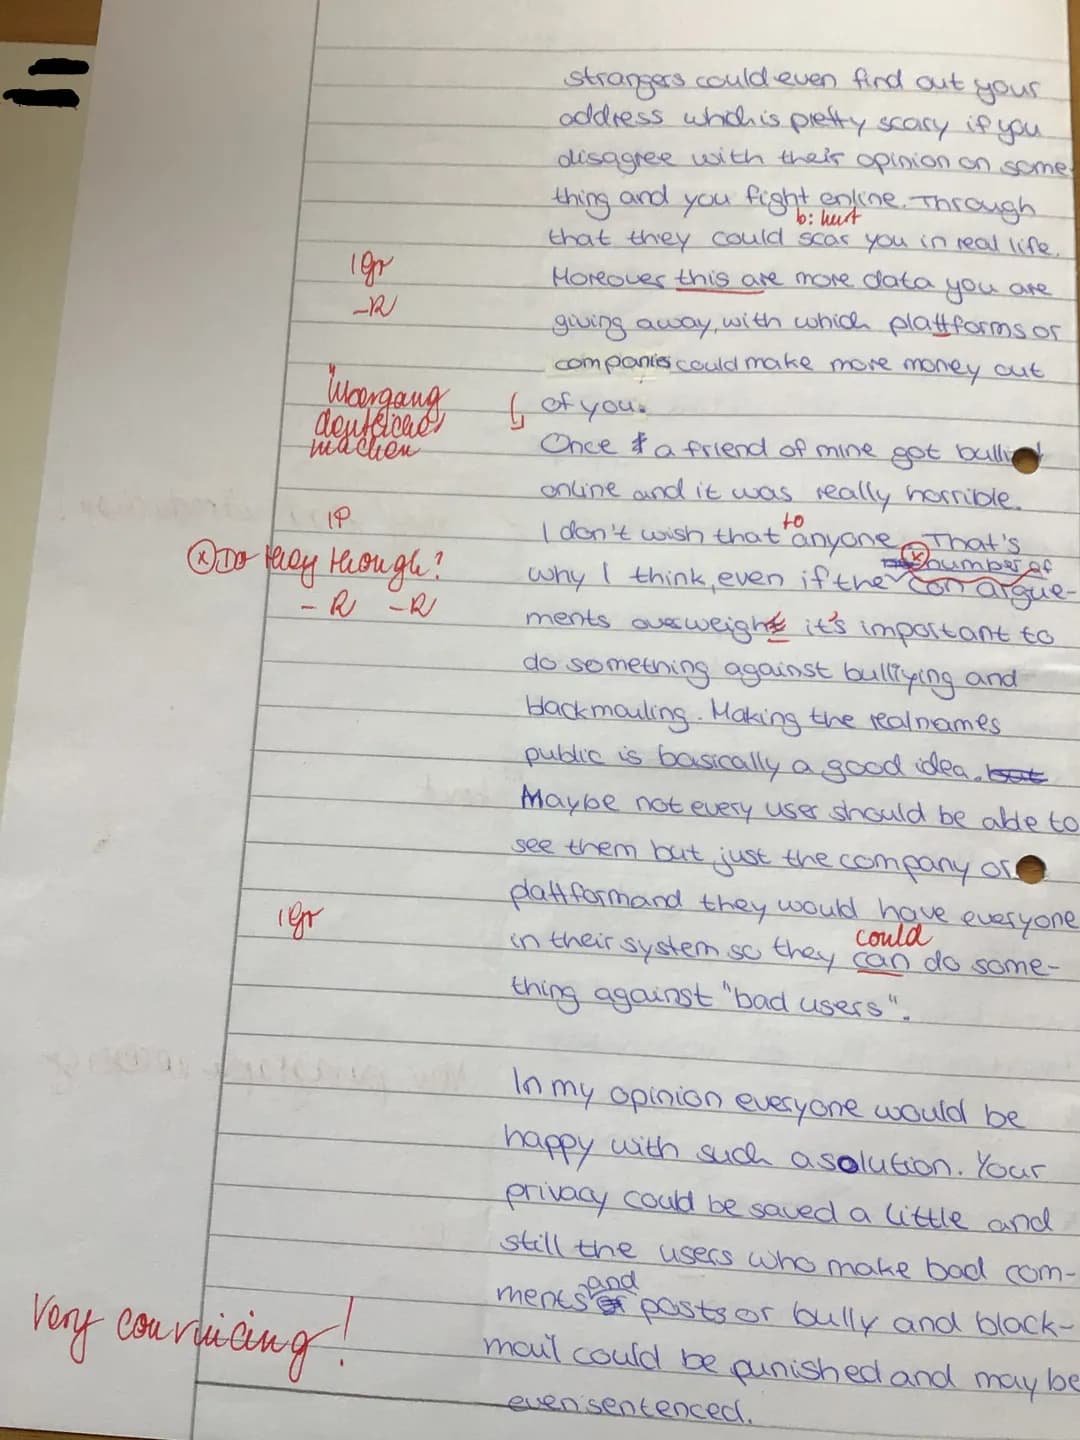 strangers could even find out your
address which is pretty scary if you
disagree with their opinion on some
thing and you fight online. Through
b: hurt
that they could scar you in real life.
1 gr
Moreover this are more data you are
-R
giving away, with which plattforms or
companies could make more money out
Übergang
deutlicher
machen
of you.
Once a friend of mine got bullied
online and it was really horrible.
1P
to
I don't wish that anyone. That's
(x) Do they though?
(x) number of
why I think, even if the con argue-
-R -R
ments overweight it's important to
do something against bullying and
blackmailing. Making the real names
public is basically a good idea. but
Maybe not every user should be able to
see them but just the company or
plattform and they would have everyone
1 gr
could
in their system so they can do some-
thing against "bad users".
In my opinion everyone would be
happy with such a solution. Your
privacy could be saved a little and
still the users who make bad com-
and
ments or posts or bully and black-
Very convincing!
mail could be punished and may be
even sentenced.